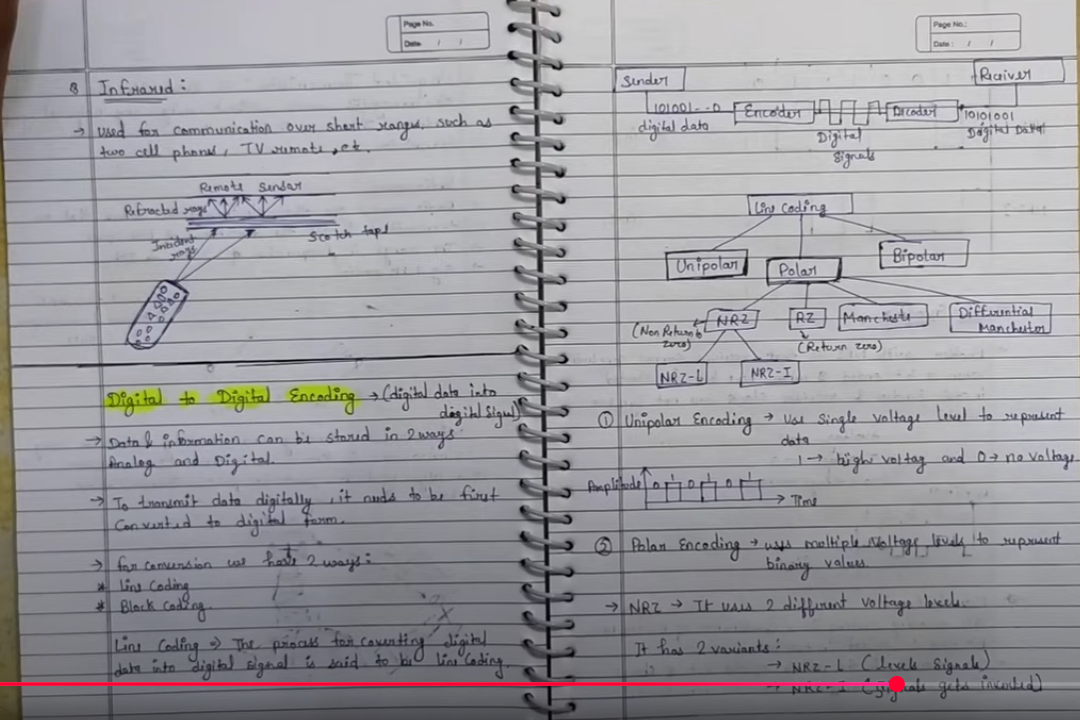 Page No.
Date / /
8 Infrared :
→ Used for communication over short ranges, such as
two cell phones, TV remote, etc.
Remote Sensar
Refracted rays
Incident
rays
Scotch tape
Digital to Digital Encoding → (digital data into
digital signal)
→ Data & information can be stored in 2 ways
Analog and Digital.
→ To transmit data digitally, it needs to be first
Converted to digital form.
→ for conversion we have 2 ways :
* Line Coding
* Block Coding.
Line Coding → The process for coverting digital
data into digital signal is said to be Line Coding.
Page No.:
Date : / /
Sender
Reciver
101001---0
Encoder
Decoder
10101001
digital data
Digital
Signals
Digital Data
Line Coding
Unipolar
Polar
Bipolar
NRZ
RZ
Mancheste
Differential
Manchester
(Non Return to
zero)
(Return zero)
NRZ-L
NRZ-I
① Unipolar Encoding → Use single voltage level to represent
data
1 → high voltag and 0 → no voltage
Amplitude 0 1 0 1 0
→ Time
② Polar Encoding → uses multiple voltage levels to represent
binary values.
→ NRZ → It uses 2 different voltage levels.
It has 2 variants :
→ NRZ-L (levels signals)
→ NRZ-I (signals gets inverted)